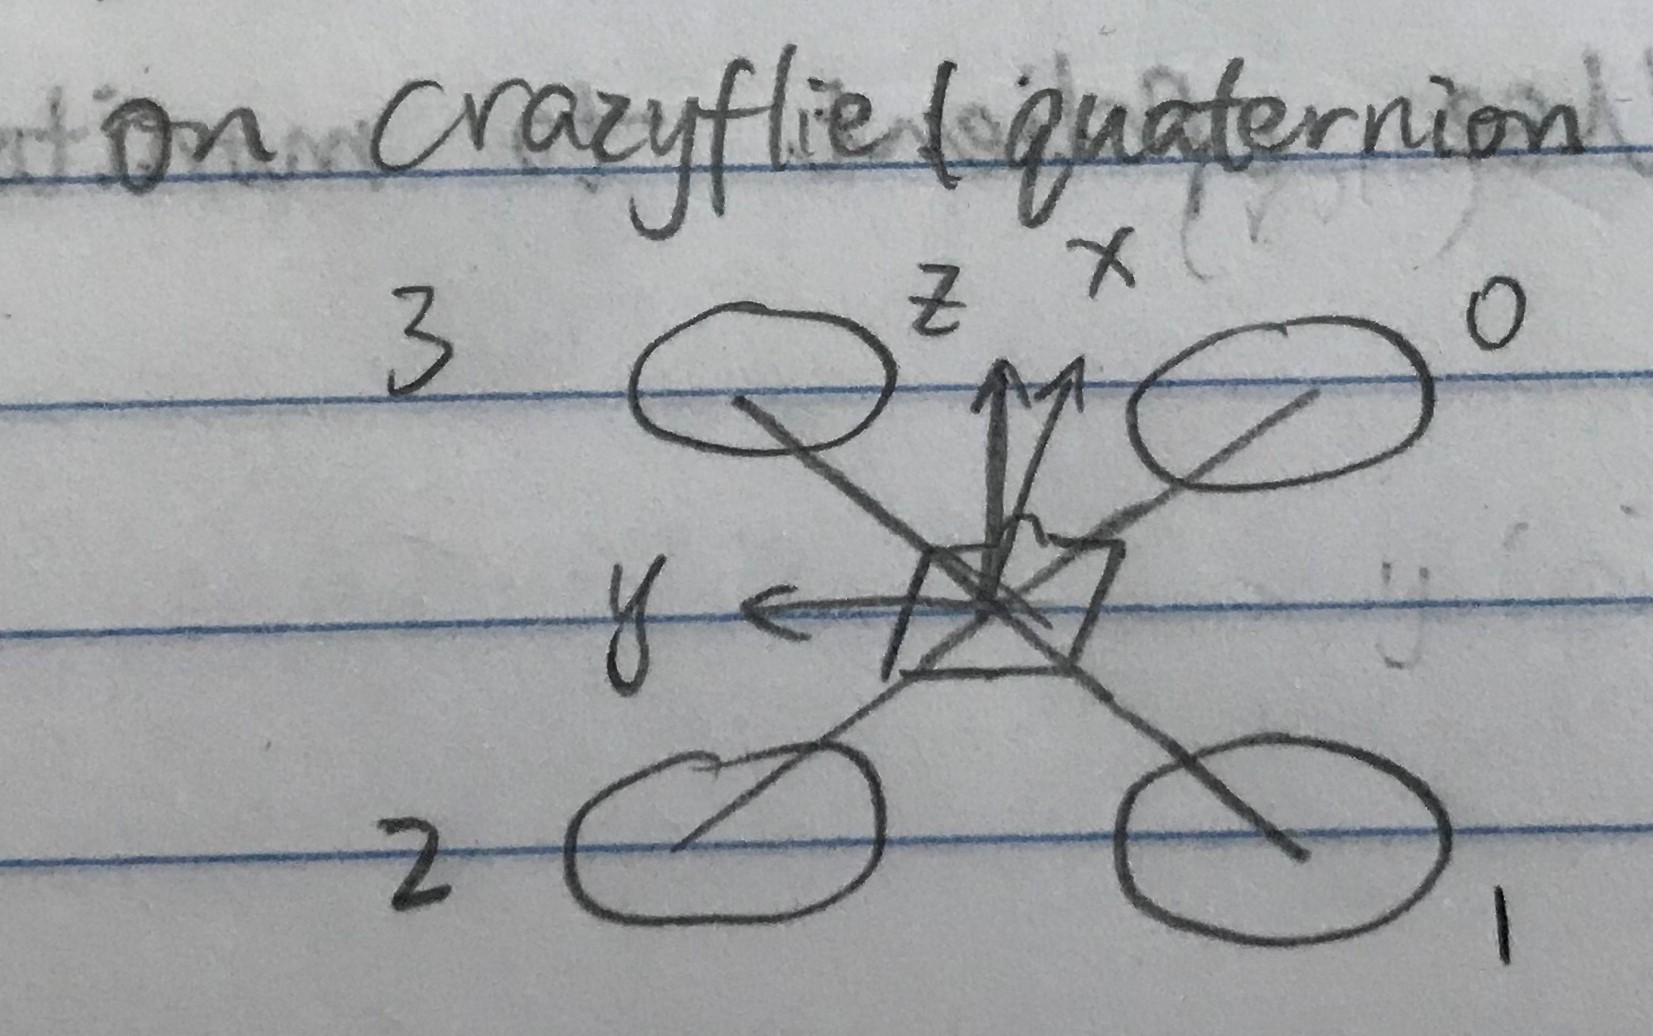 on crazyflie ( quaternion
z x
3 0
y
2 1